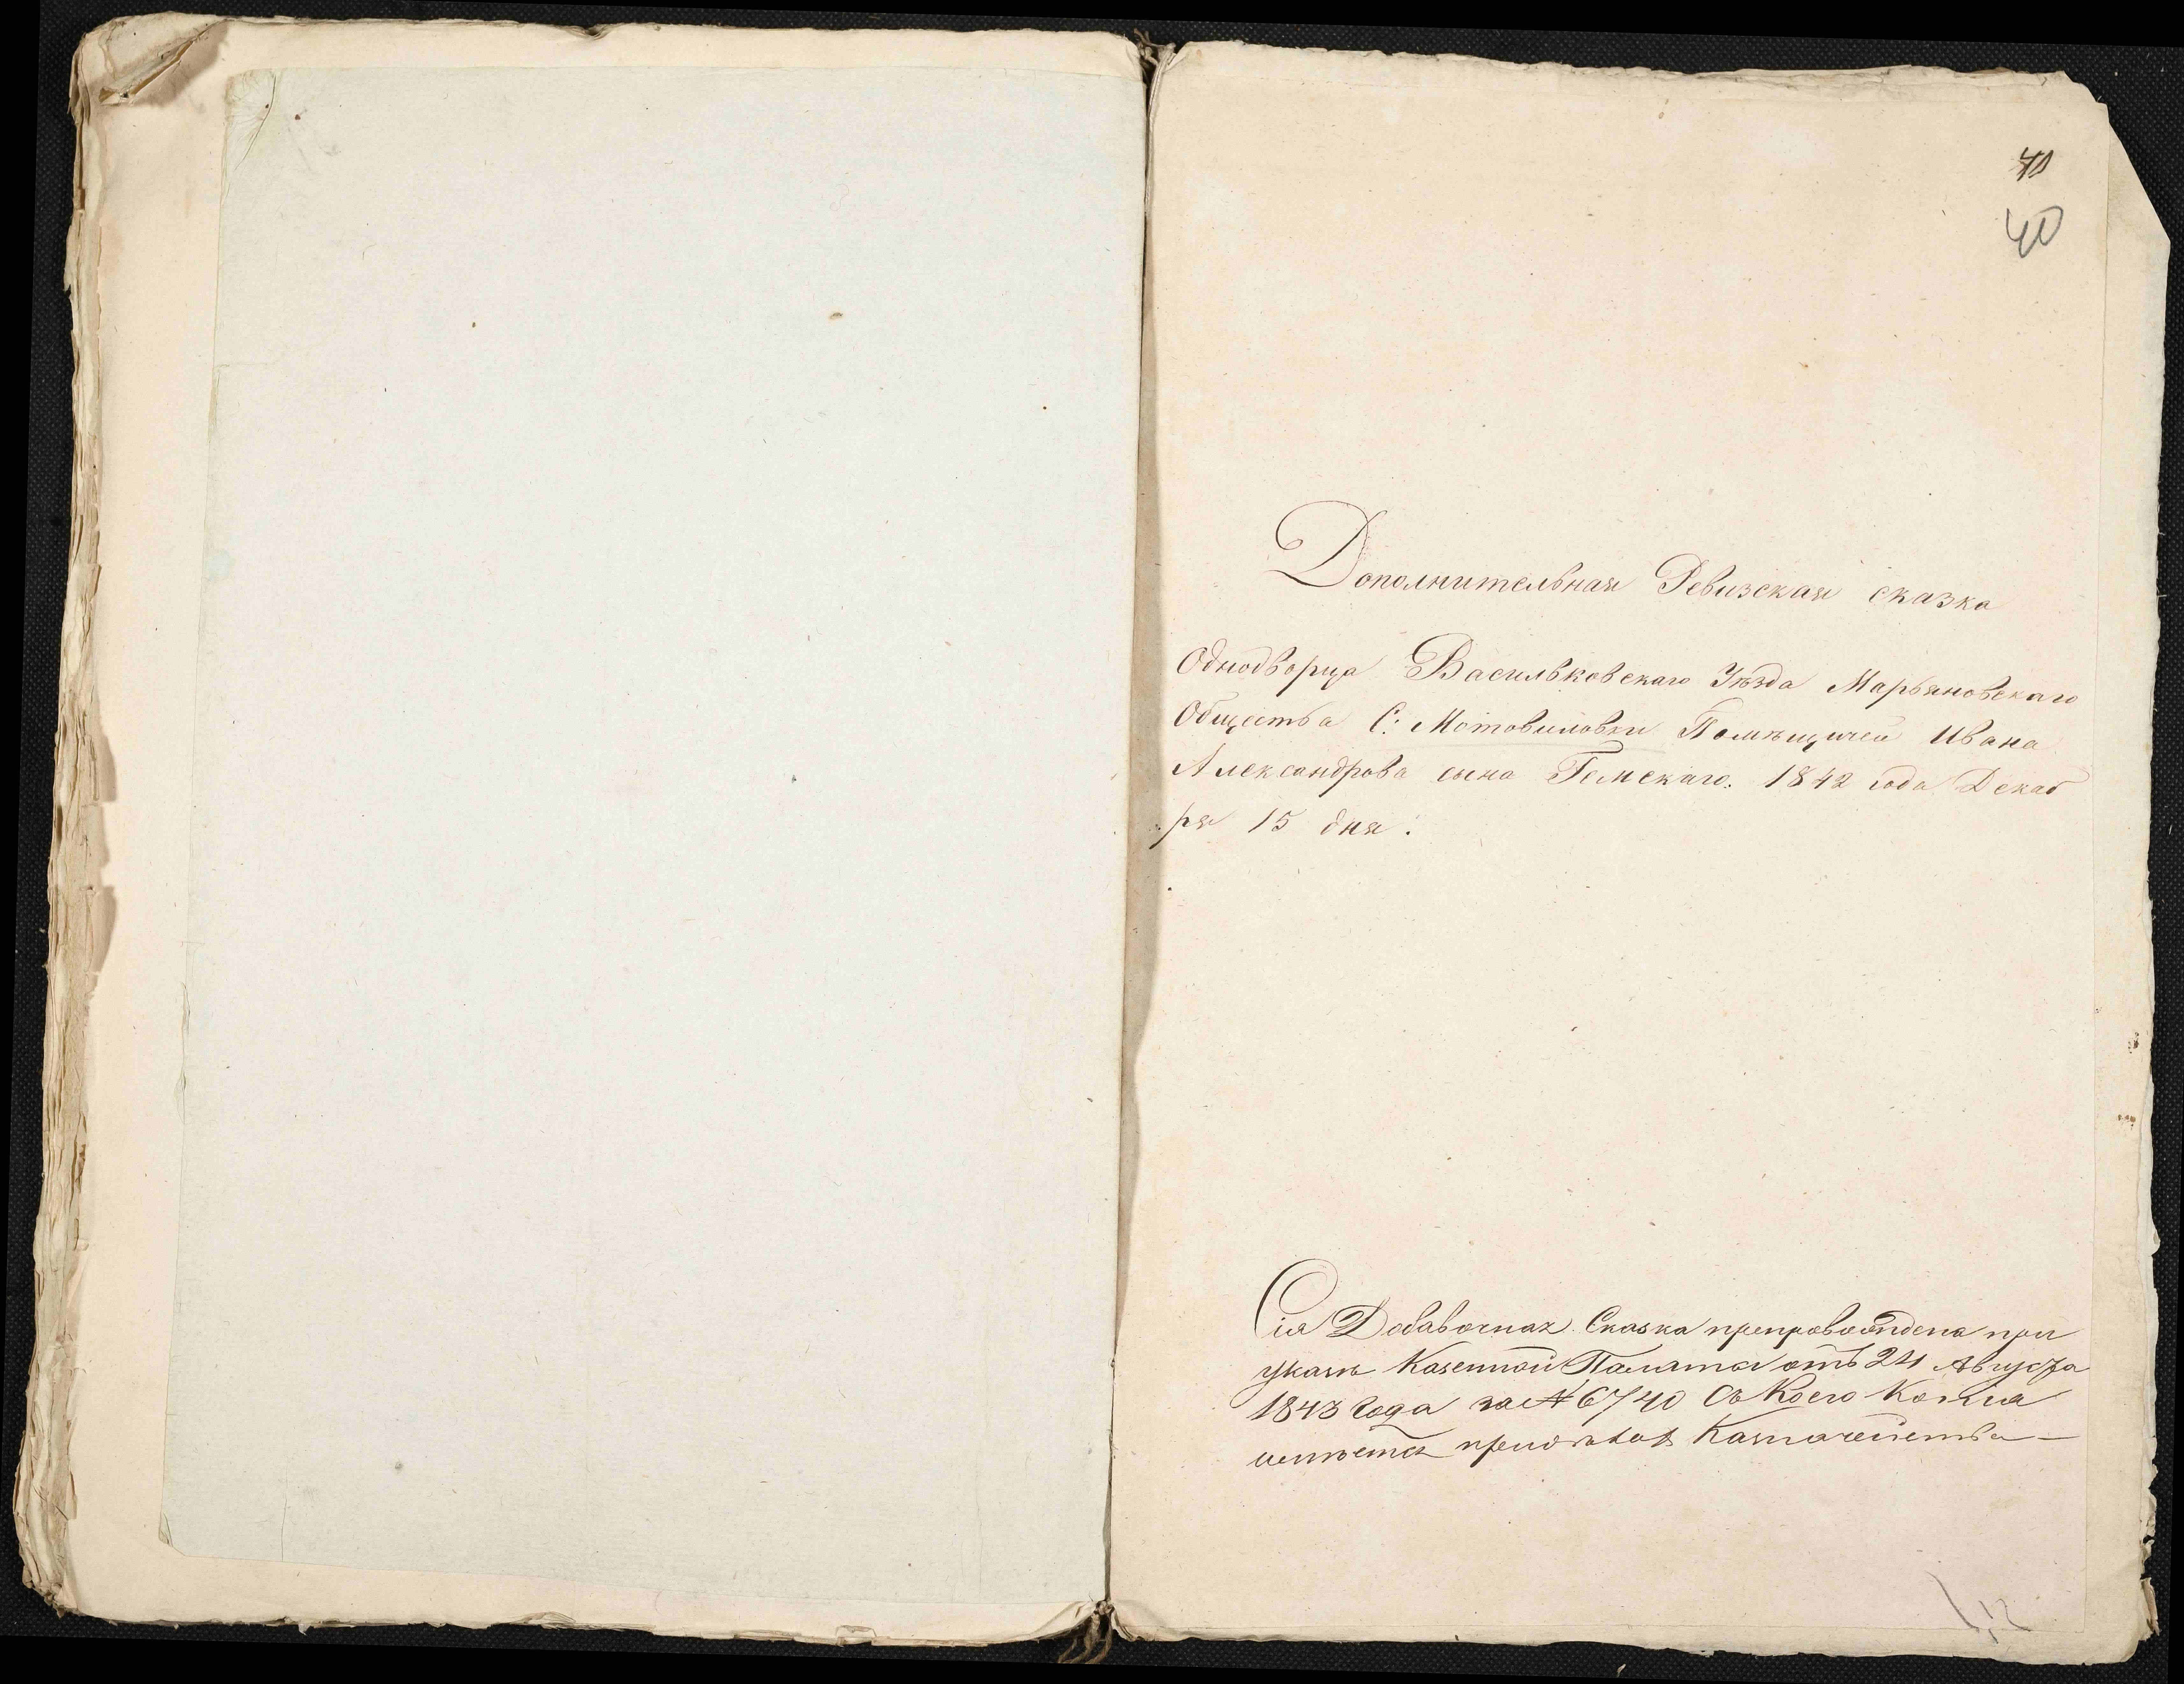 40
Дополнительная Ревизская сказка
Однодворца Васильковскаго Уѣзда Марьяновскаго
Общества С. Мотовиловки Помѣщичей Ивана
Александрова сына Гемскаго. 1842 года Декаб
ря 15 дня.
Сія Добавочная Сказка препровождена при
указѣ Казенной Палаты отъ 24 Августа
1843 года за № 6740 съ коего копія
имѣется при дѣлахъ Казначейства